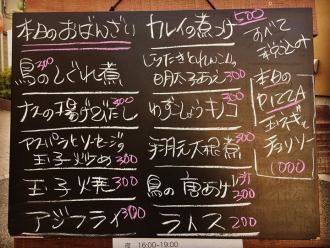 本日のおばんざい
鳥のしぐれ煮 300
ナスの揚げだし 300
アスパラとソーセージの
玉子炒め 300
玉子焼 300
アジフライ 300
カレイの煮つけ 500
しらたきとれんこんの
明太子あえ 300
わさびしょうゆキノコ 300
大根煮 300
鳥の唐あげ 1ケ 200
ライス 200
すべて
本日の
PIZZA
玉ネギと
チョリソー
1000
夜 16:00-19:00